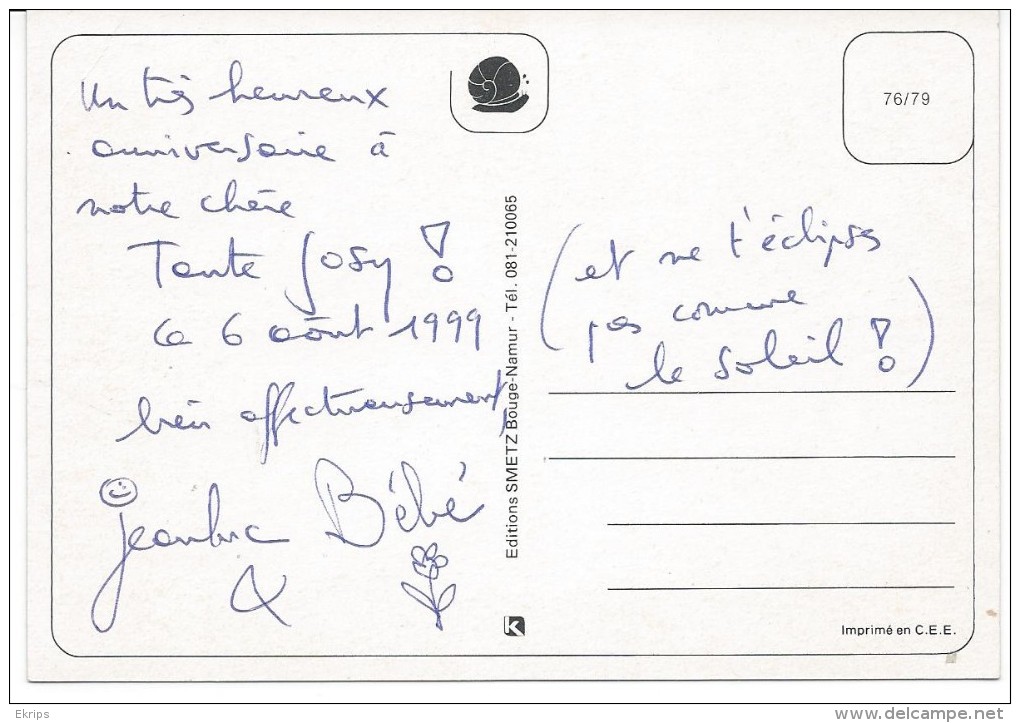 Un très heureux
anniversaire à
notre chère
Tante Josy !
Ce 6 août 1999
bien affectueusement,
Jeanluc Bébé
&
(et ne t'éclipses
pas comme
le soleil !)
76/79
Editions SMETZ Bouge-Namur - Tél. 081-210065
K
Imprimé en C.E.E.
Ekrips
www.delcampe.net